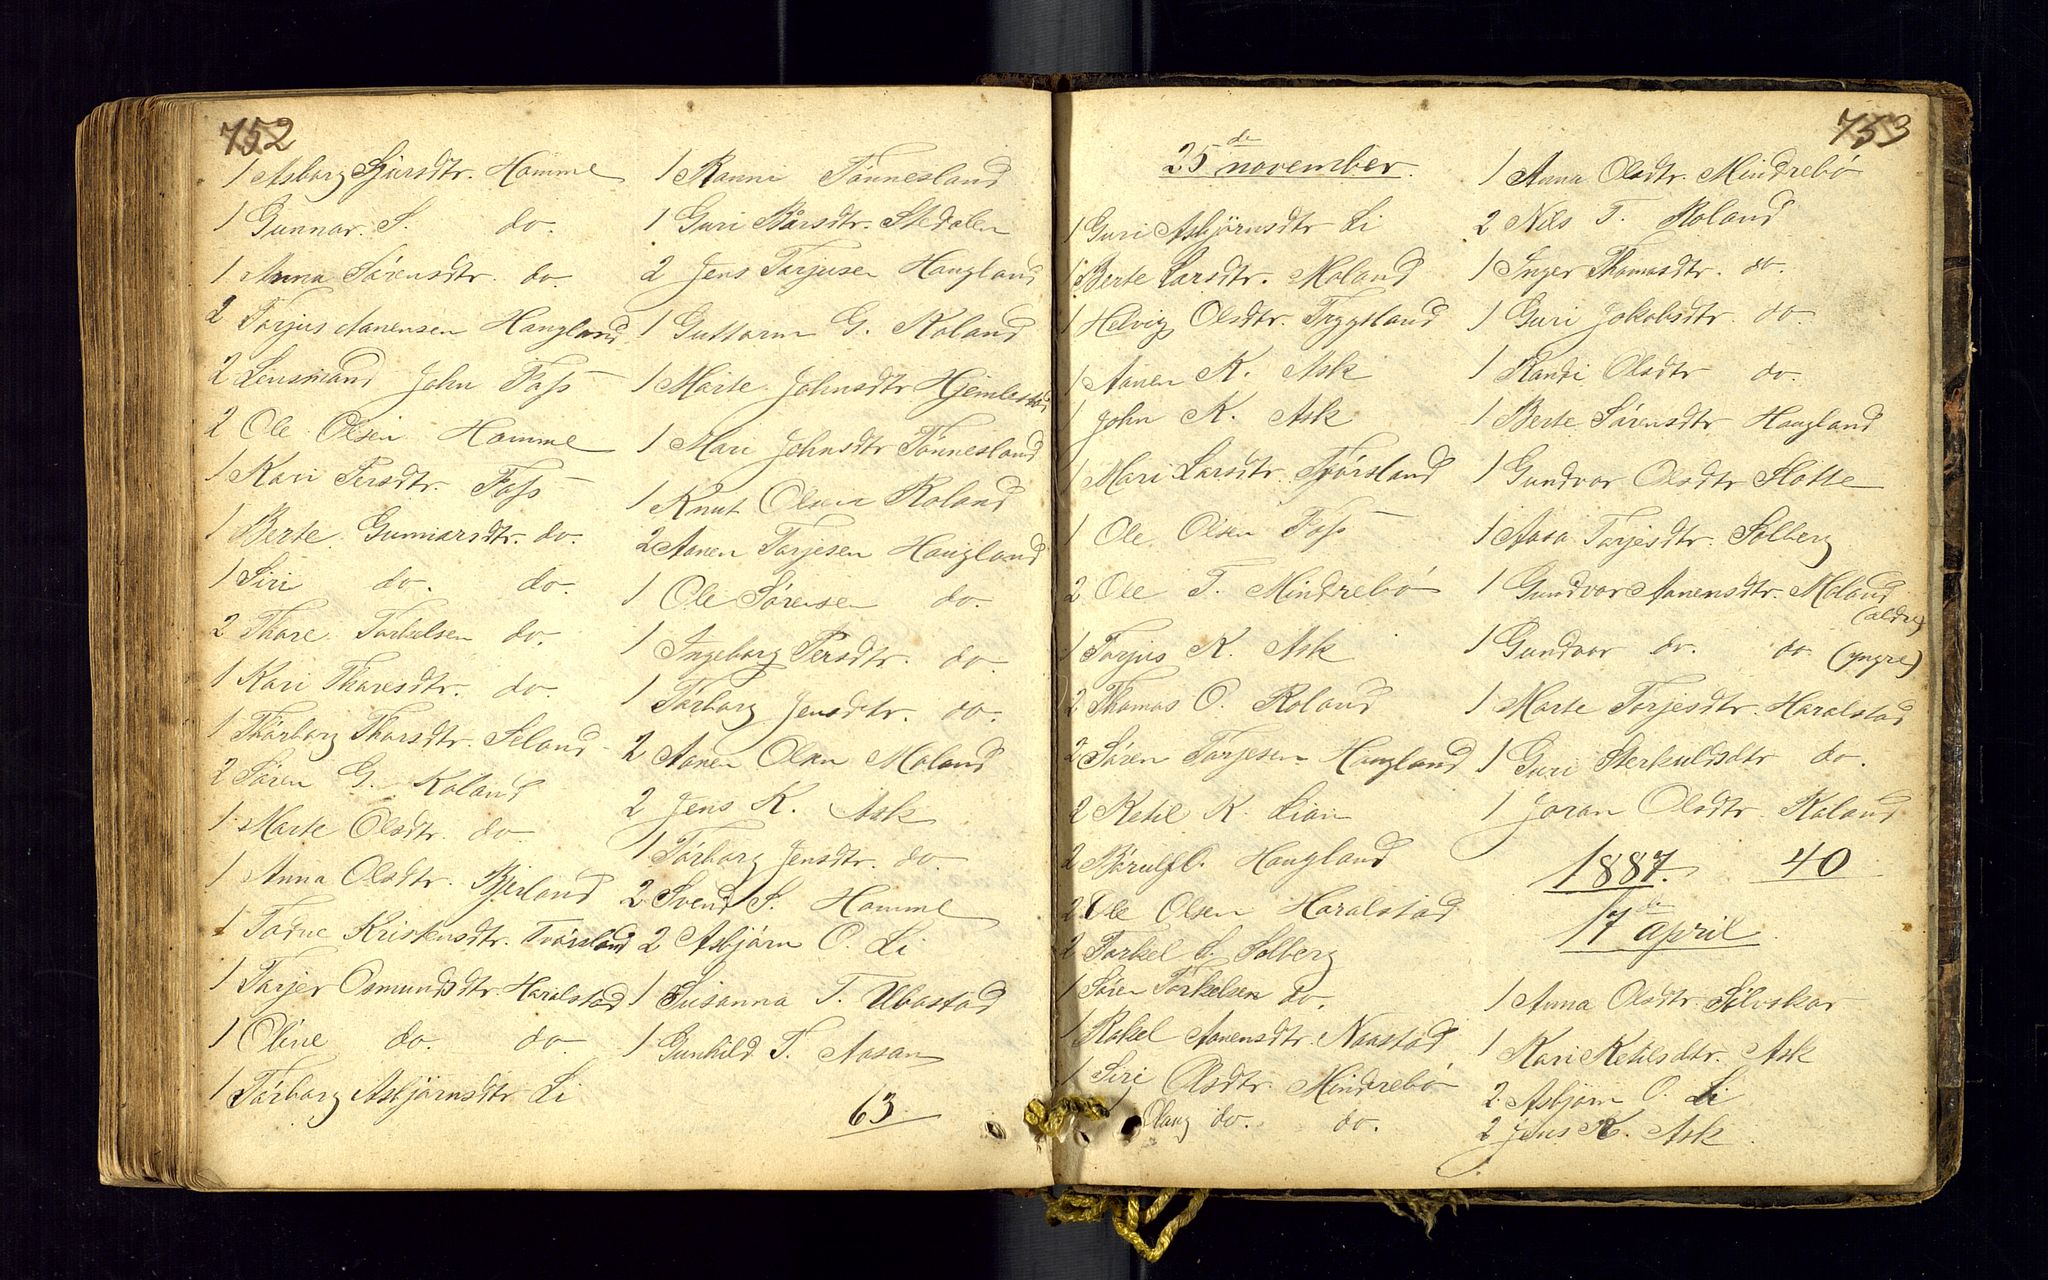 752
1 Asborg Sjursdtr. Homme
1 Gunnar. S. do.
1 Anna Sørensdtr. do.
2 Torjus Aanensen Haugland
2 Lensmand John Foss
2 Ole Olsen Homme
1 Kari Persdtr. Foss
1 Berte Gunnarsdtr. do.
1 Siri do. do.
2 Thore Torkelsen do.
1 Kari Thoresdtr. do.
1 Thorborg Thorsdtr. Seland
2 Søren G. Roland
1 Marte Olsdtr. do
1 Anna Olsdtr. Bjerland
1 Torne Kristensdtr. Tvørsland
1 Torjer Osmundsdtr. Haralstad
1 Oline do. do.
1 Torborg Asbjørnsdtr Li
1 Ranni Tønnesland
1 Guri Børsdtr. Stedalen
2 Jens Torjusen Haugland
1 Guttorm G. Roland
1 Marte Johnsdtr Hjemlestad
1 Mari Johnsdtr Tønnesland
1 Knut Olsen Roland
2 Aanen Torjesen Haugland
1 Ole Sørensen do.
1 Ingeborg Persdtr. do.
1 Torborg Jensdtr. do.
2 Aanen Olsen Moland
2 Jens K. Ask
1 Torborg Jensdtr. do.
2 Svend S. Homme
2 Asbjørn O. Li
1 Susanna T. Ubostad
1 Gunhild T. Aasan
63
753
25de november.
1 Guri Asbjørnsdtr Li
1 Berte Larsdtr. Moland
1 Helvig Olsdtr. Trygsland
1 Aanen K. Ask
1 John K. Ask
1 Mari Larsdtr. Tvørsland
1 Ole Olsen Foss
2 Ole T. Mindrebø
1 Torjus K. Ask
2 Thomas O. Roland
2 Søren Torjesen Haugland
2 Ketil K. Lian
2 Børulf O. Haugland
2 Ole Olsen Haralstad
2 Torkel S. Solberg
1 Søren Torkelsen do.
1 Rakel Aanensdtr. Naastad
1 Siri Olsdtr. Mindrebø
1 Olaug do. do.
1 Anna Olsdtr. Mindrebø
2 Nils T. Roland
1 Inger Thomasdtr. do.
1 Guri Jakobsdtr. do.
1 Randi Olsdtr do.
1 Berte Sørensdtr. Haugland
1 Gundvor Olsdtr Hotte
1 Aasa Torjesdtr. Solberg
1 Gundvor Aanensdtr. Moland
(ældre)
1 Gundvor do. do. (yngre)
1 Marte Torjesdtr. Haralstad
1 Guri Sterkuldsdtr do.
1 Joran Olsdtr. Roland
1887. 40
17de april
1 Anna Olsdtr. Sølvskar
1 Kari Ketilsdtr. Ask
2 Asbjørn O. Li
2 Jens K. Ask